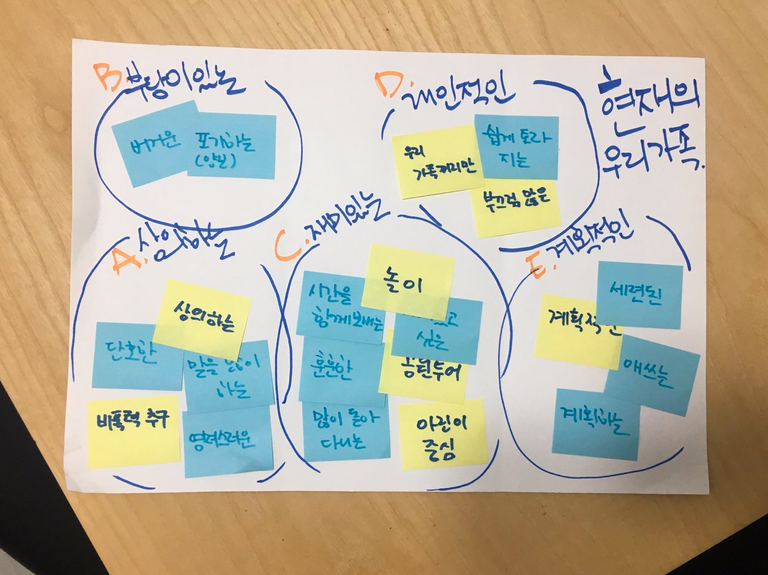 현재의
우리가족.
B. 부랑이있는
버거운
포기하는
(양밀)
D. 개인적인
우리
가족끼리만
쉽게 토라
지는
부끄럼 많은
A. 상의하는
상의하는
단호한
말을 많이
하는
비폭력 추구
염려스러운
C. 재미있는
놀이
시간을
함께보내는
싶은
훈훈한
공원투어
많이 돌아
다니는
어린이
중심
E. 계획적인
세련된
계획적인
애쓰는
계획하는